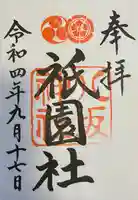 奉拝
祇園社
令和四年九月十七日